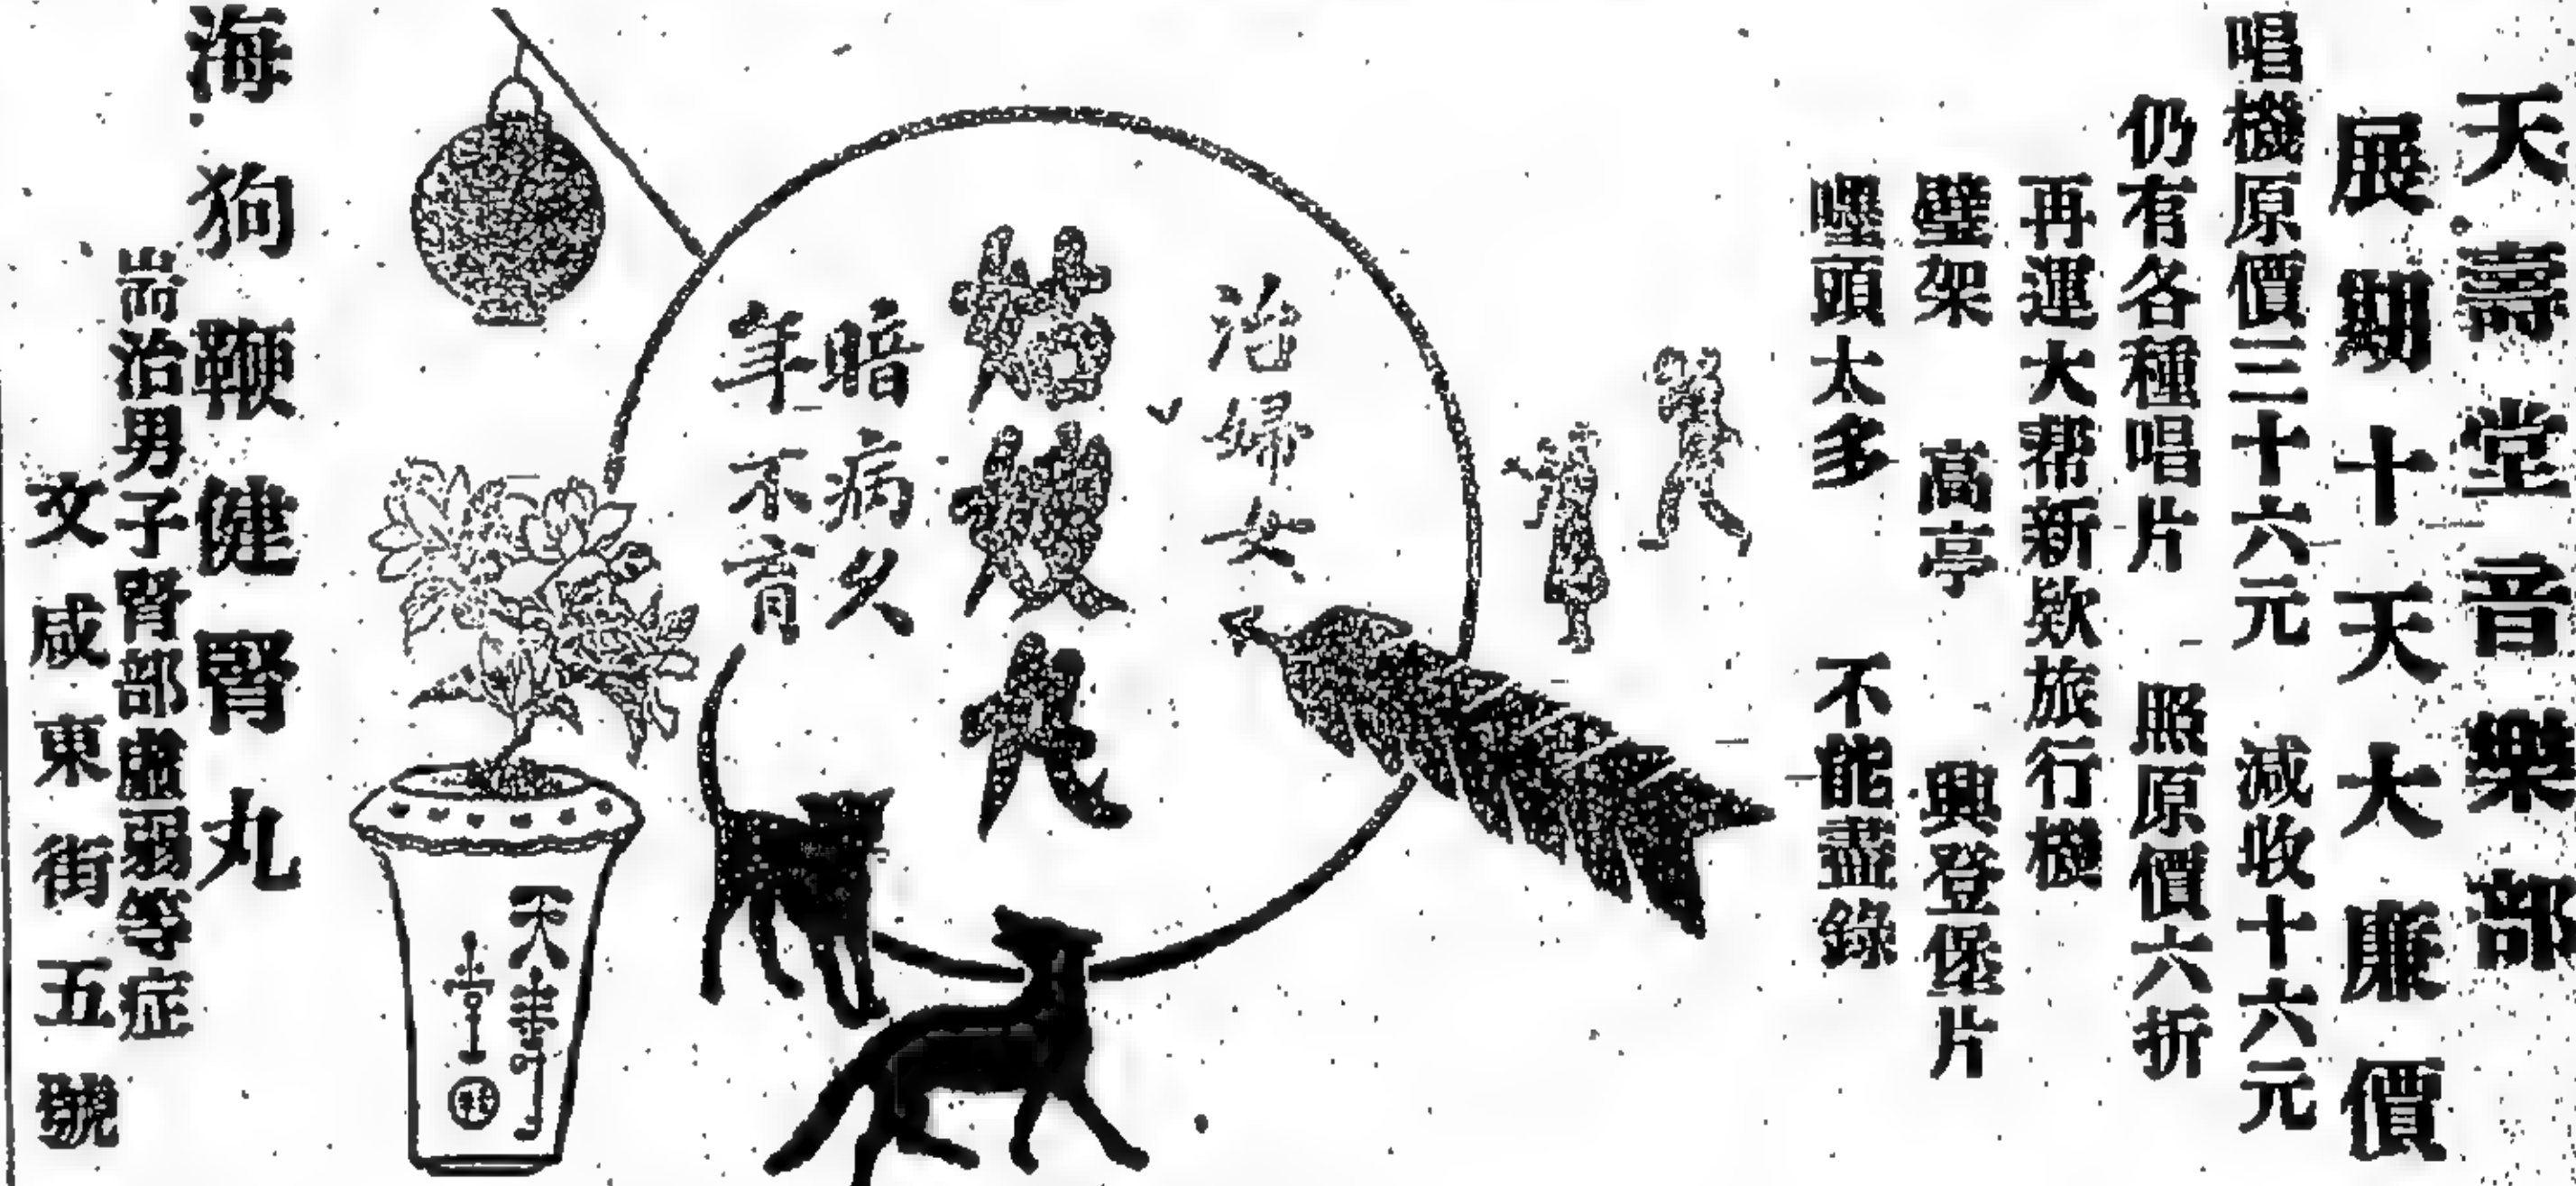 天壽堂音樂部
展期十天大廉價
唱機原價三十六元　減收十六元
仍有各種唱片　照原價六折
再運大帮新欵旅行機
璧架　高亭　興登堡片
嘜頭太多　不能盡錄
治婦女
丸
暗病久
年不育
天壽
堂
海狗鞭健腎丸
耑治男子腎部虛弱等症
文咸東街五號